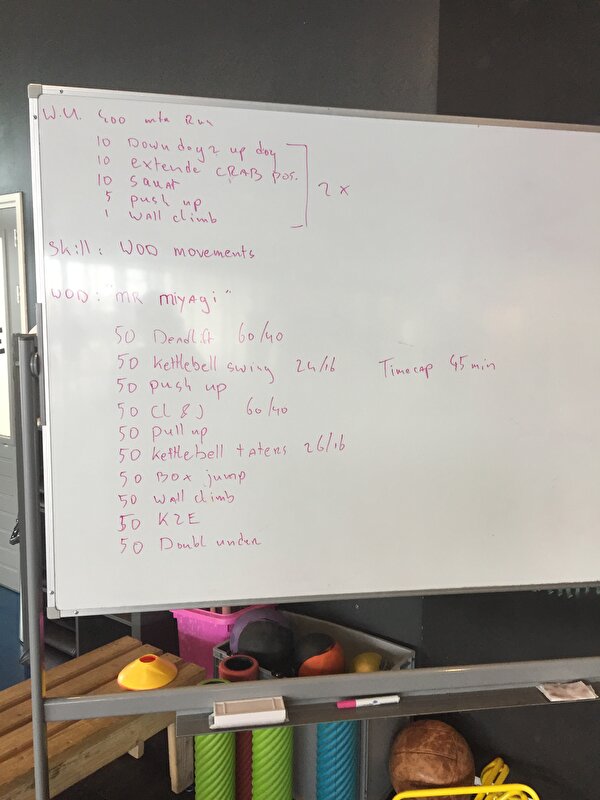 W.U. 400 mtr Run
10 Down dog 2 up dog
10 extende CRAB pos.
10 squat
5 push up
1 wall climb
2 x
Skill: WOD movements
WOD: "MR miyagi"
50 Deadlift 60/40
50 kettlebell swing 24/16 Timecap 45 min
50 push up
50 CL & J 60/40
50 pull up
50 kettlebell taters 26/16
50 Box jump
50 wall climb
50 K2E
50 Doubl under